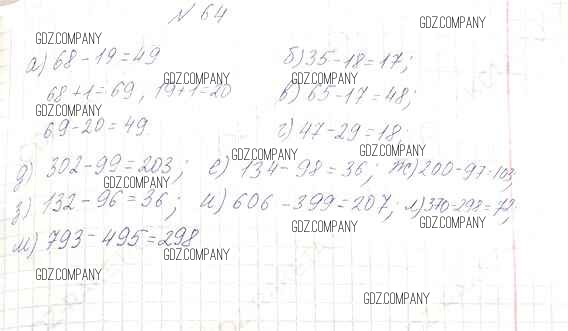 № 64
GDZ.COMPANY GDZ.COMPANY
а) 68 - 19 = 49 б) 35 - 18 = 17;
GDZ.COMPANY GDZ.COMPANY
68 + 1 = 69, 19 + 1 = 20 в) 65 - 17 = 48;
GDZ.COMPANY
69 - 20 = 49 г) 47 - 29 = 18;
GDZ.COMPANY GDZ.COMPANY
д) 302 - 99 = 203; е) 134 - 98 = 36; ж) 200 - 97 = 103;
GDZ.COMPANY
з) 132 - 96 = 36; и) 606 - 399 = 207; л) 370 - 298 = 72;
GDZ.COMPANY GDZ.COMPANY
м) 793 - 495 = 298
GDZ.COMPANY
GDZ.COMPANY
GDZ.COMPANY